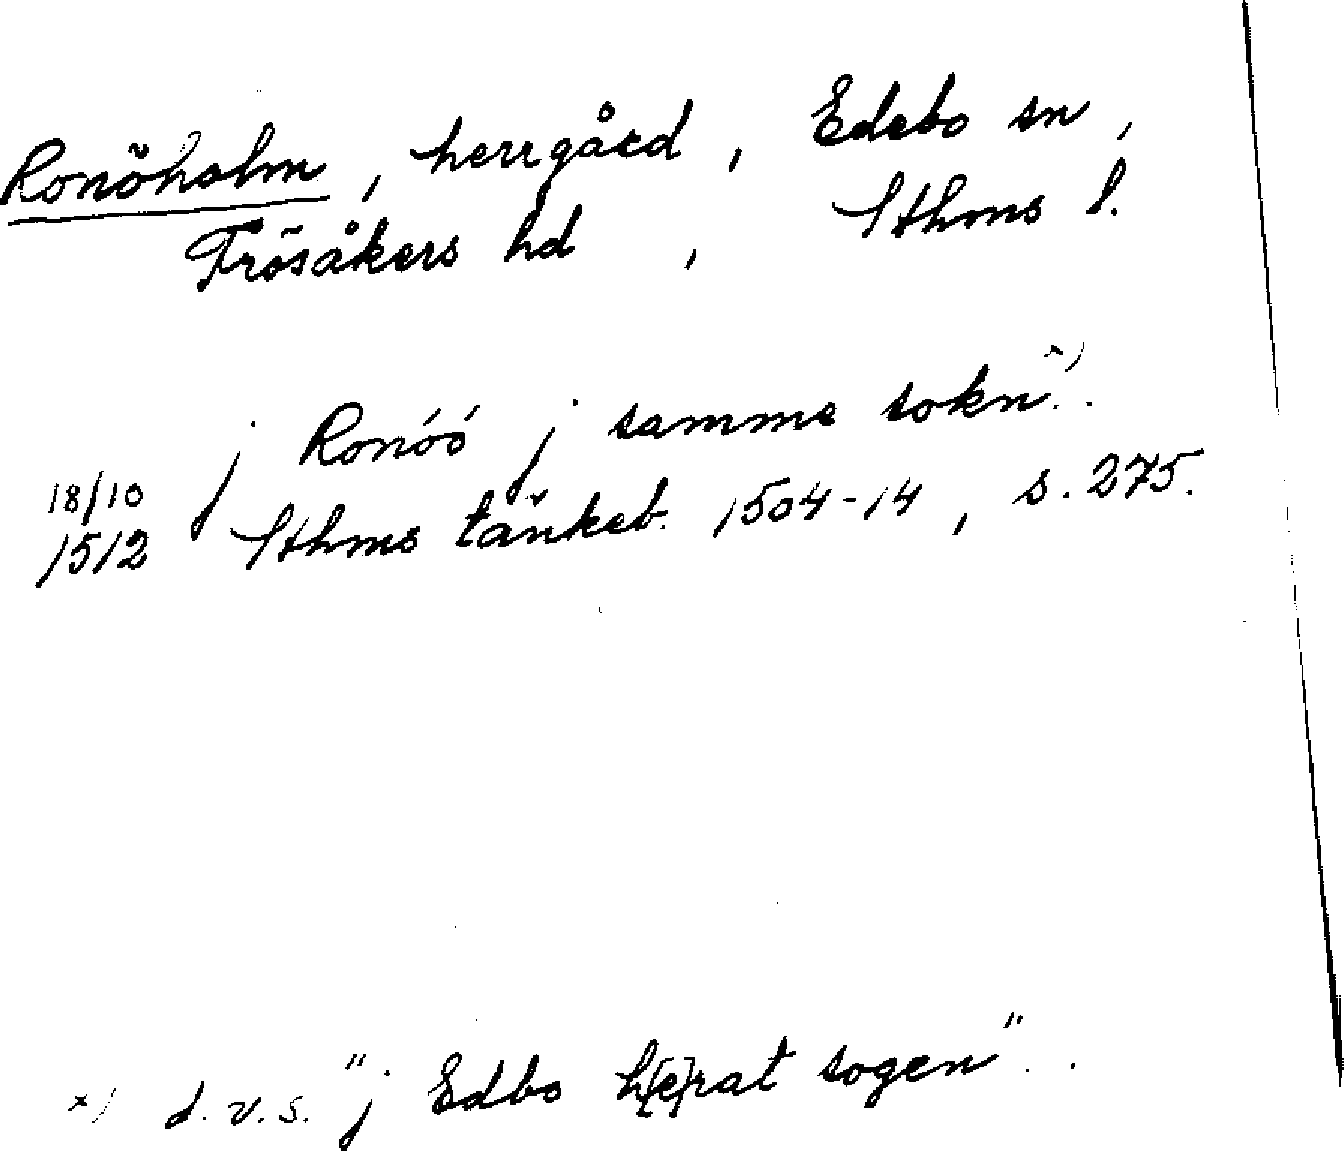 Ronöholm, herrgård, Edebo sn,
Frösåkers hd, Sthms l.
j Ronóó j samme sokn x).
18/10
1512 Sthms tänkeb. 1504-14, s. 275.
x) d.v.s. "j Edbo h[e]rat sogen".